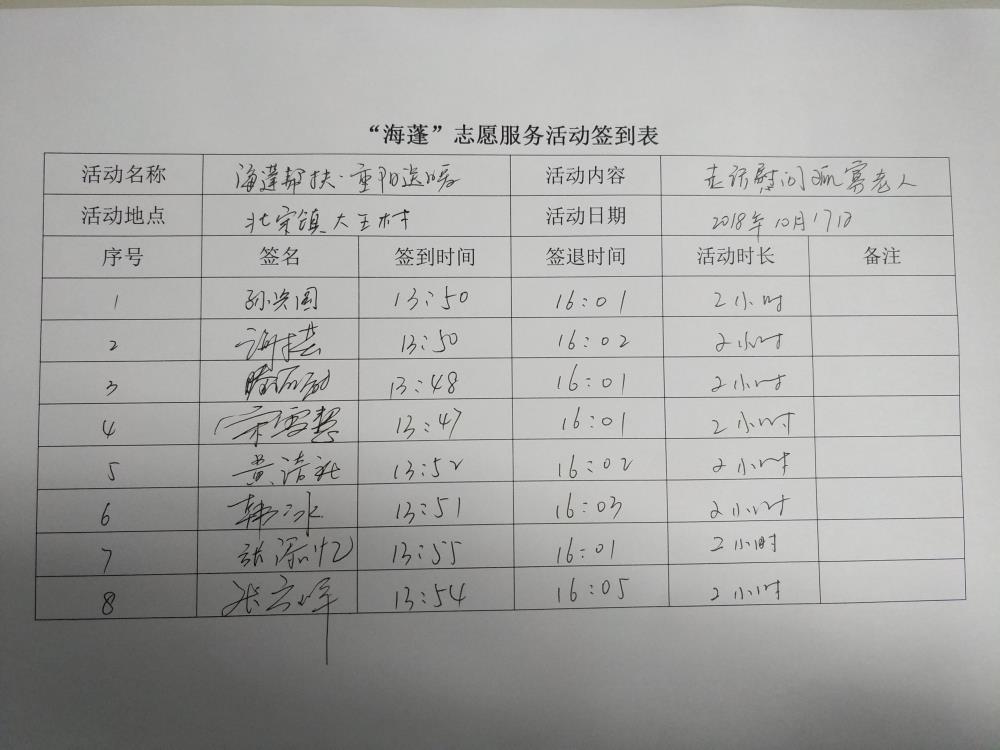 “海蓬”志愿服务活动签到表
活动名称 海蓬帮扶·重阳送暖 活动内容 走访慰问孤寡老人
活动地点 北宋镇大王村 活动日期 2018年10月17日
序号 签名 签到时间 签退时间 活动时长 备注
1 孙兴国 13:50 16:01 2小时
2 13:50 16:02 2小时
3 13:48 16:01 2小时
4 宋雪慧 13:47 16:01 2小时
5 黄洁 13:52 16:02 2小时
6 韩冰 13:51 16:03 2小时
7 张深忆 13:55 16:01 2小时
8 张云峰 13:54 16:05 2小时